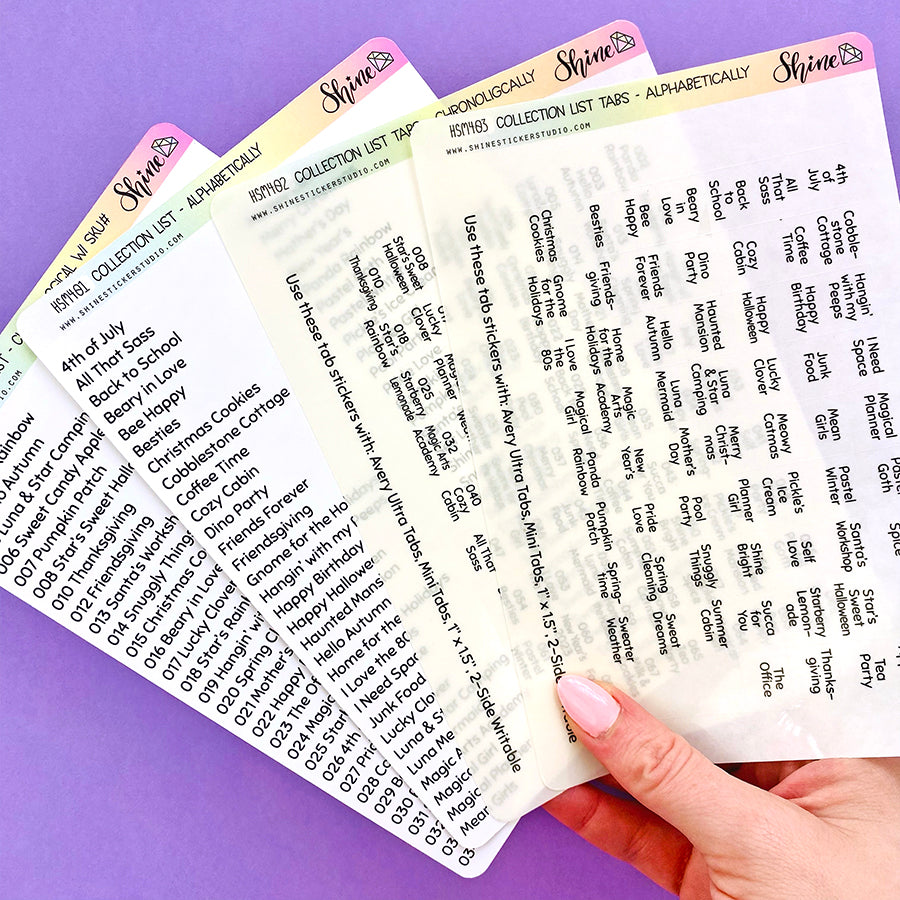 Shine
OGICAL W/ SKU#
Rainbow
o Autumn
Luna & Star Campin
006 Sweet Candy Appl
007 Pumpkin Patch
008 Star's Sweet Hal
010 Thanksgiving
012 Friendsgiving
013 Santa's Works
014 Snuggly Things
015 Christmas Co
016 Beary in Love
017 Lucky Clove
018 Star's Rai
019 Hangin' wi
020 Spring C
021 Mother's
022 Happy
023 The Of
024 Magic
025 Star
026 4th
027 Pri
028 Co
029 B
030
Shine
HSM401 COLLECTION LIST - ALPHABETICALLY
WWW.SHINESTICKERSTUDIO.COM
4th of July
All That Sass
Back to School
Beary in Love
Bee Happy
Besties
Christmas Cookies
Cobblestone Cottage
Coffee Time
Cozy Cabin
Dino Party
Friends Forever
Friendsgiving
Gnome for the Ho
Hangin' with my
Happy Birthday
Happy Hallowe
Haunted Mans
Hello Autumn
Home for the
I Love the 80
I Need Space
Junk Food
Lucky Clov
Luna & S
Luna Me
Magic A
Magica
Magic
Mean
Shine
HSM402 COLLECTION LIST TABS - CHRONOLIGCALLY
WWW.SHINESTICKERSTUDIO.COM
Use these tab stickers with: Avery Ultra Tabs, Mini Tabs, 1" x 1.5", 2-Side Writable
008
Star's Sweet
Halloween
010
Thanksgiving
Lucky
Clover
018
Star's
Rainbow
Planner
025
Starberry
Lemonade
032
Magic Arts
Academy
040
Cozy
Cabin
All That
Sass
Shine
HSM403 COLLECTION LIST TABS - ALPHABETICALLY
WWW.SHINESTICKERSTUDIO.COM
Use these tab stickers with: Avery Ultra Tabs, Mini Tabs, 1" x 1.5", 2-Side
4th
of
July
All
That
Sass
Back
to
School
Beary
in
Love
Bee
Happy
Besties
Christmas
Cookies
Cobble-
stone
Cottage
Coffee
Time
Cozy
Cabin
Dino
Party
Friends
Forever
Friends-
giving
Gnome
for the
Holidays
Hangin'
with my
Peeps
Happy
Birthday
Happy
Halloween
Haunted
Mansion
Hello
Autumn
Home
for the
Holidays
I Love
the
80s
I Need
Space
Junk
Food
Lucky
Clover
Luna
& Star
Camping
Luna
Mermaid
Magic
Arts
Academy
Magical
Girl
Magical
Planner
Mean
Girls
Meowy
Catmas
Merry
Christ-
mas
Mother's
Day
New
Year's
Panda
Rainbow
Pastel
Goth
Pastel
Winter
Pickle's
Ice
Cream
Planner
Girl
Pool
Party
Pride
Love
Pumpkin
Patch
Spice
Santa's
Workshop
Self
Love
Shine
Bright
Snuggly
Things
Spring
Cleaning
Spring-
time
Star's
Sweet
Halloween
Starberry
Lemon-
ade
Succa
for
You
Summer
Cabin
Sweat
Dreams
Sweater
Weather
Tea
Party
Thanks-
giving
The
Office